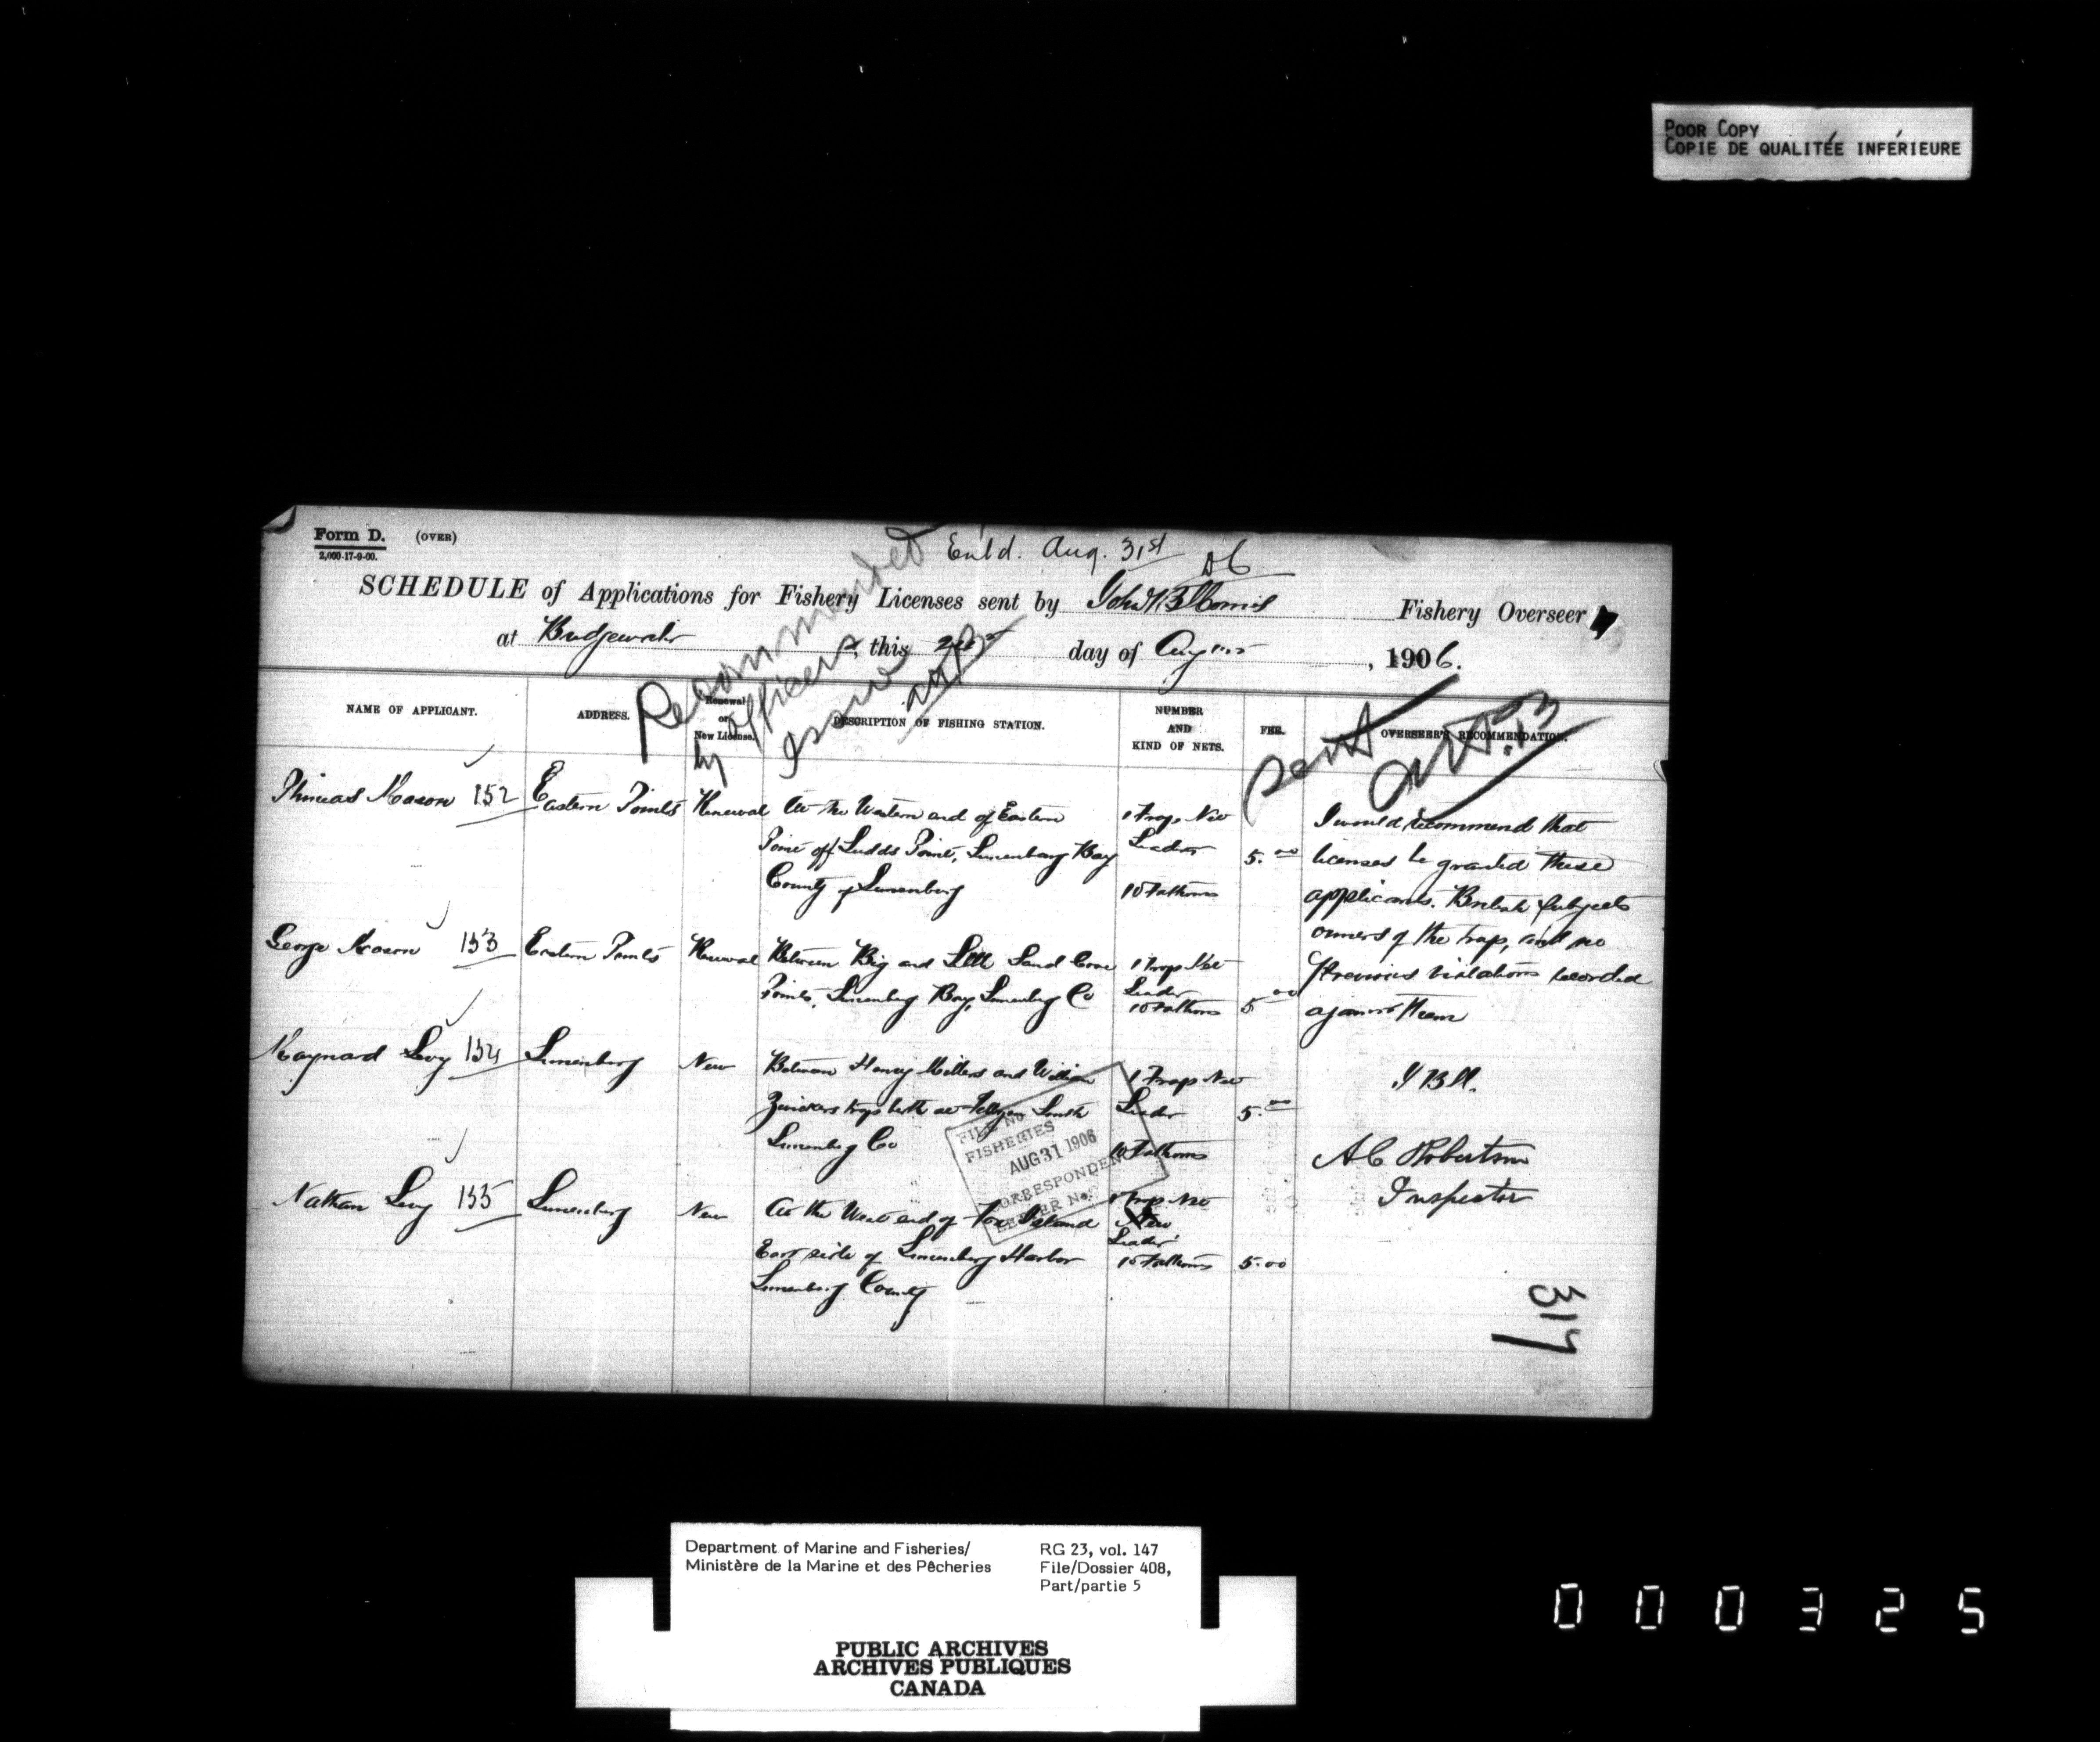 POOR COPY
COPIE DE QUALITÉE INFÉRIEURE
Form D. (OVER)
2,000-17-9-00.
Ent'd. Aug. 31st
SCHEDULE of Applications for Fishery Licenses sent by Fishery Overseer
at Bridgewater, this day of August, 1906.
Recommended
by officers
issue
sent
NAME OF APPLICANT. ADDRESS. Renewal or New License. DESCRIPTION OF FISHING STATION. NUMBER AND KIND OF NETS. FEE. OVERSEER'S RECOMMENDATION.
Phineas Mason 152 Eastern Points Renewal At the Western end of Eastern 1 Trap Net
Point off Ludds Point, Lunenburg Bay Leader 5.00
County of Lunenburg 10 Fathoms
George Mason 153 Eastern Points Renewal Between Big and Little Sand Cove 1 Trap Net
Points, Lunenburg Bay, Lunenburg Co Leader
10 Fathoms 5.00
Maynard Levy 154 Lunenburg New Between Henry Millers and William 1 Trap Net
Zwickers trap berth at South Leader 5.00
Lunenburg Co 10 Fathoms
Nathan Levy 155 Lunenburg New At the West end of Fox Island 1 Trap Net
East side of Lunenburg Harbor Leader
Lunenburg County 10 Fathoms 5.00
I would recommend that
licenses be granted these
applicants. British subjects
owners of the trap, and no
previous violations recorded
against them
A C Robertson
Inspector
FILE No
FISHERIES
AUG 31 1906
CORRESPONDENCE
LETTER No.
317
Department of Marine and Fisheries/
Ministère de la Marine et des Pêcheries
RG 23, vol. 147
File/Dossier 408,
Part/partie 5
PUBLIC ARCHIVES
ARCHIVES PUBLIQUES
CANADA
000325